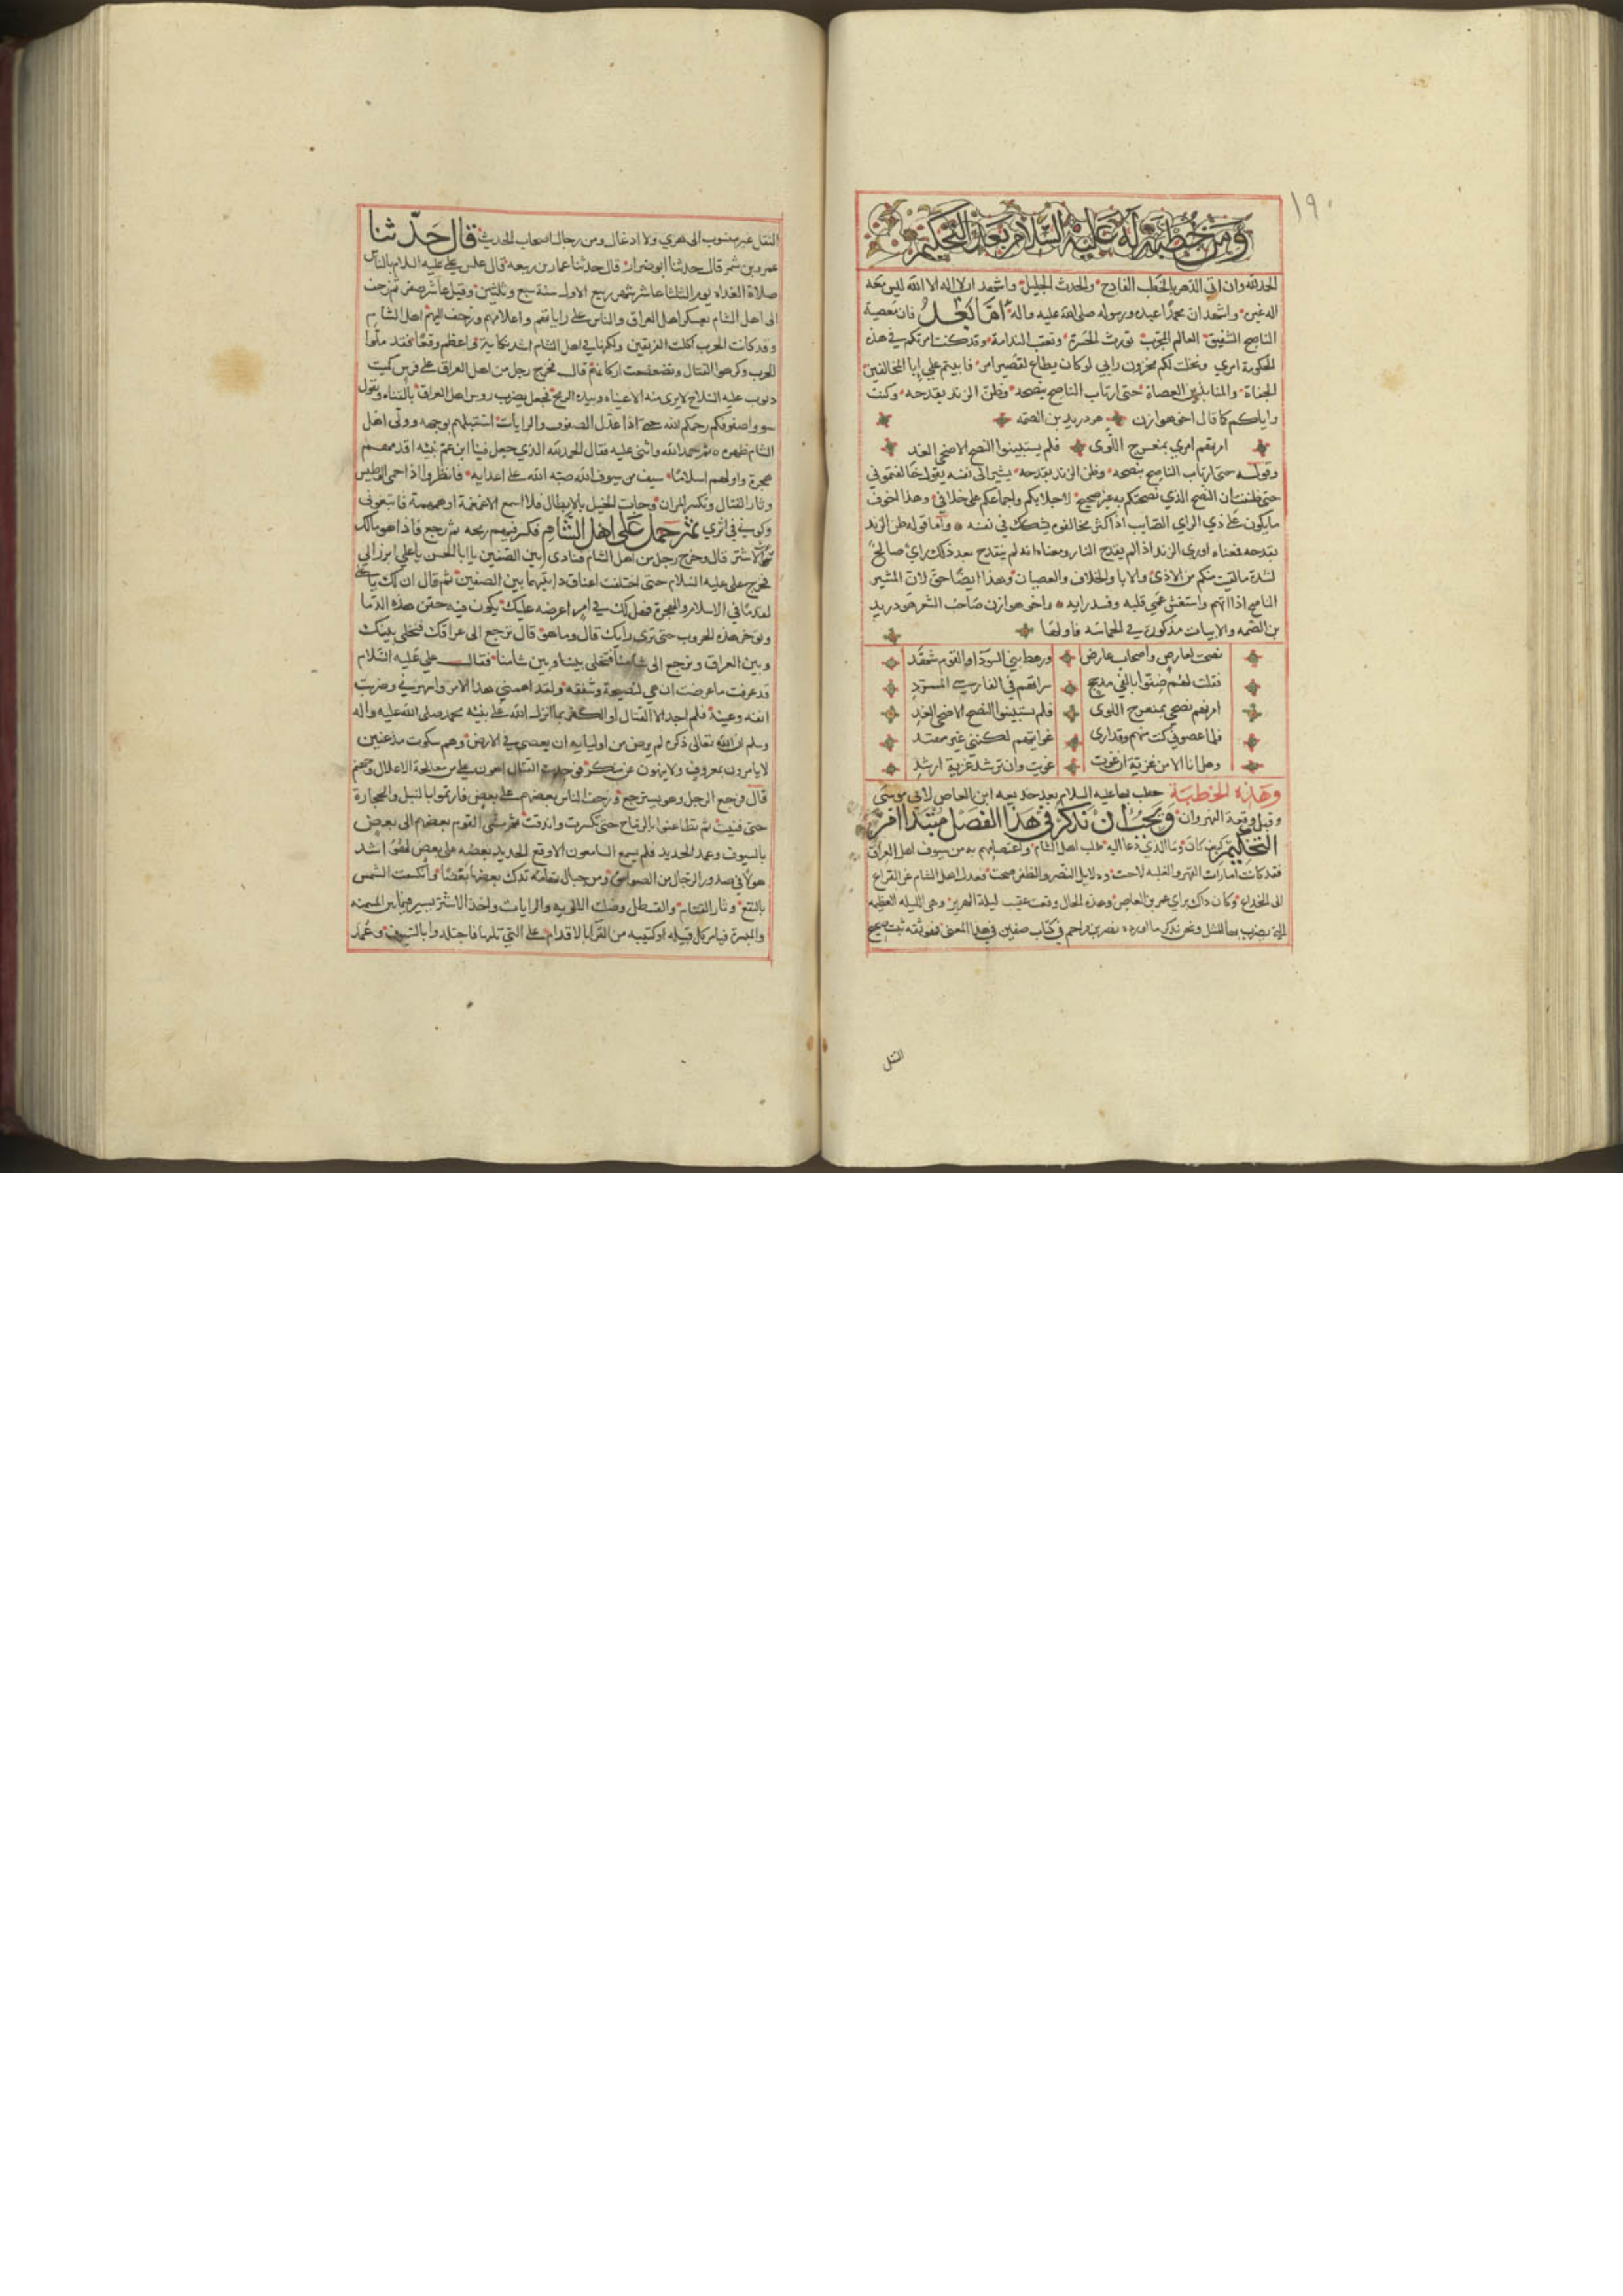 ١٩٠
ومن خطبة له عليه السلام بعد التحكيم
الحمد لله وان اتى الدهر بالخطب الفادح والحدث الجليل واشهد ان لا اله الا الله ليس معه
اله غيره واشهد ان محمدا عبده ورسوله صلى الله عليه واله اما بعد فان معصية
الناصح الشفيق العالم المجرب تورث الحسرة وتعقب الندامة وقد كنت امرتكم في هذه
الحكومة امري ونخلت لكم مخزون رايي لو كان يطاع لقصير امر فابيتم علي إبا المخالفين
الجفاة والمنابذين العصاة حتى ارتاب الناصح بنصحه وظن الزند بقدحه وكنت
واياكم كما قال اخو هوازن هو دريد بن الصمه
امرتهم امري بمنعرج اللوى فلم يستبينوا النصح الا ضحى الغد
وقوله حتى ارتاب الناصح بنصحه وظن الزند بقدحه يشير الى نفسه يقول خالفتموني
حتى ظننت ان النصح الذي نصحتكم به غير صحيح لاجلابكم واجماعكم على خلافي وهذا الخوف
ما يكون على ذي الراي الصايب اذا كثر مخالفوه يشك في نفسه واما قوله ظن الزند
بقدحه فمعناه اوري الزند اذا لم يقدح النار ومعناه انه لم ينقدح بعد ذلك راي صالح
لشدة ما لقيت منكم من الاذى والابا والخلاف والعصيان وهذا ايضا حق لان المشير
الناصح اذا اتهم واستغش عمي قلبه وفسد رايه واخو هوازن صاحب الشعر هو دريد
بن الصمه والابيات مذكورة في الحماسه فاولها
نصحت لعارض واصحاب عارض ورهط بني السودا والقوم شهد
فقلت لهم ظنوا بالفي مدجج سراتهم في الفارسي المسرد
امرتهم نصحي بمنعرج اللوى فلم يستبينوا النصح الا ضحى الغد
فلما عصوني كنت منهم وقد ارى غوايتهم لكنني غير معتد
وهل انا الا من غزية ان غوت غويت وان ترشد غزية ارشد
وهذه الخطبة خطب بها عليه السلام بعد خديعه ابن العاص لابي موسى
وقبل وقعة النهروان ويجب ان نذكر في هذا الفصل مبتدا امر
التحكيم كيف كان وما الذي دعا اليه طلب اهل الشام واعتصامهم به من سيوف اهل العراق
فقد كانت امارات القهر والغلبه لاحت ودلايل النصر والظفر وضحت فعدل اهل الشام عن القراع
الى الخداع وكان ذلك براي عمرو بن العاص وهذه الحال وقعت عقيب ليلة الهرير وهي الليله العظيمه
التي يضرب بها المثل ونحن نذكر ما اورده نصر بن مزاحم في كتاب صفين في هذا المعنى فهو ثقه ثبت صحيح
النقل
النقل غير منسوب الى هوى ولا ادغال ومن رجال اصحاب الحديث قال حدثنا
عمرو بن شمر قال حدثنا ابو ضرار قال حدثنا عمار بن ربيعه قال غلس علي عليه السلام بالناس
صلاة الغداه يوم الثلثا عاشر شهر ربيع الاول سنة سبع وثلثين وقيل عاشر صفر ثم زحف
الى اهل الشام بعسكر اهل العراق والناس على راياتهم واعلامهم وزحف اليهم اهل الشام
وقد كانت الحرب اكلت الفريقين ولكنها في اهل الشام اشد نكاية واعظم وقعا فقد ملوا
الحرب وكرهوا القتال وتضعضعت اركانهم قال فخرج رجل من اهل العراق على فرس كميت
ذنوب عليه السلاح لا يرى منه الا عيناه وبيده الرمح فجعل يضرب روس اهل العراق بالقناه ويقول
سووا صفوفكم رحمكم الله حتى اذا عدل الصفوف والرايات استقبلهم بوجهه وولى اهل
الشام ظهره ثم حمد الله واثنى عليه فقال الحمد لله الذي جعل فينا ابن عم نبيه اقدمهم
هجرة واولهم اسلاما سيف من سيوف الله صبه الله على اعدايه فانظروا اذا حمي الوطيس
وثار القتال وتكسر المران وجالت الخيل بالابطال فلا اسمع الا غمغمة او همهمة فاتبعوني
وكونوا في اثري ثم حمل على اهل الشام فكسر فيهم رمحه ثم رجع فاذا هو مالك
الاشتر قال وخرج رجل من اهل الشام فنادى بين الصفين يا ابا الحسن يا علي ابرز الي
فخرج علي عليه السلام حتى اختلفت اعناق دابتيهما بين الصفين ثم قال ان لك يا علي
لقدما في الاسلام والهجرة فهل لك في امر اعرضه عليك يكون فيه حقن هذه الدما
وتوخر هذه الحروب حتى ترى رايك قال وما هو قال ترجع الى عراقك فنخلي بينك
وبين العراق ونرجع الى شامنا فتخلي بيننا وبين شامنا فقال علي عليه السلام
قد عرفت ما عرضت ان هي لنصيحة وشفقه ولقد اهمني هذا الامر واسهرني وضربت
انفه وعينه فلم اجد الا القتال او الكفر بما انزل الله على نبيه محمد صلى الله عليه واله
وسلم ان الله تعالى ذكره لم يرض من اوليايه ان يعصى في الارض وهم سكوت مذعنين
لا يامرون بمعروف ولا ينهون عن منكر فوجدت القتال اهون علي من معالجة الاغلال في جهنم
قال فرجع الرجل وهو يسترجع وزحف الناس بعضهم على بعض فارتموا بالنبل والحجارة
حتى فنيت ثم تطاعنوا بالرماح حتى تكسرت واندقت ثم مشى القوم بعضهم الى بعض
بالسيوف وعمد الحديد فلم يسمع السامعون الا وقع الحديد بعضه على بعض لهو اشد
هولا في صدور الرجال من الصواعق ومن جبال تهامة تدك بعضها بعضا وانكسفت الشمس
بالنقع وثار القتام والقسطل وضلت الالويه والرايات واخذ الاشتر يسير فيما بين الميمنه
والميسرة فيامر كل قبيله او كتيبه من القرا بالاقدام على التي تليها فاجتلدوا بالسيوف وعمد